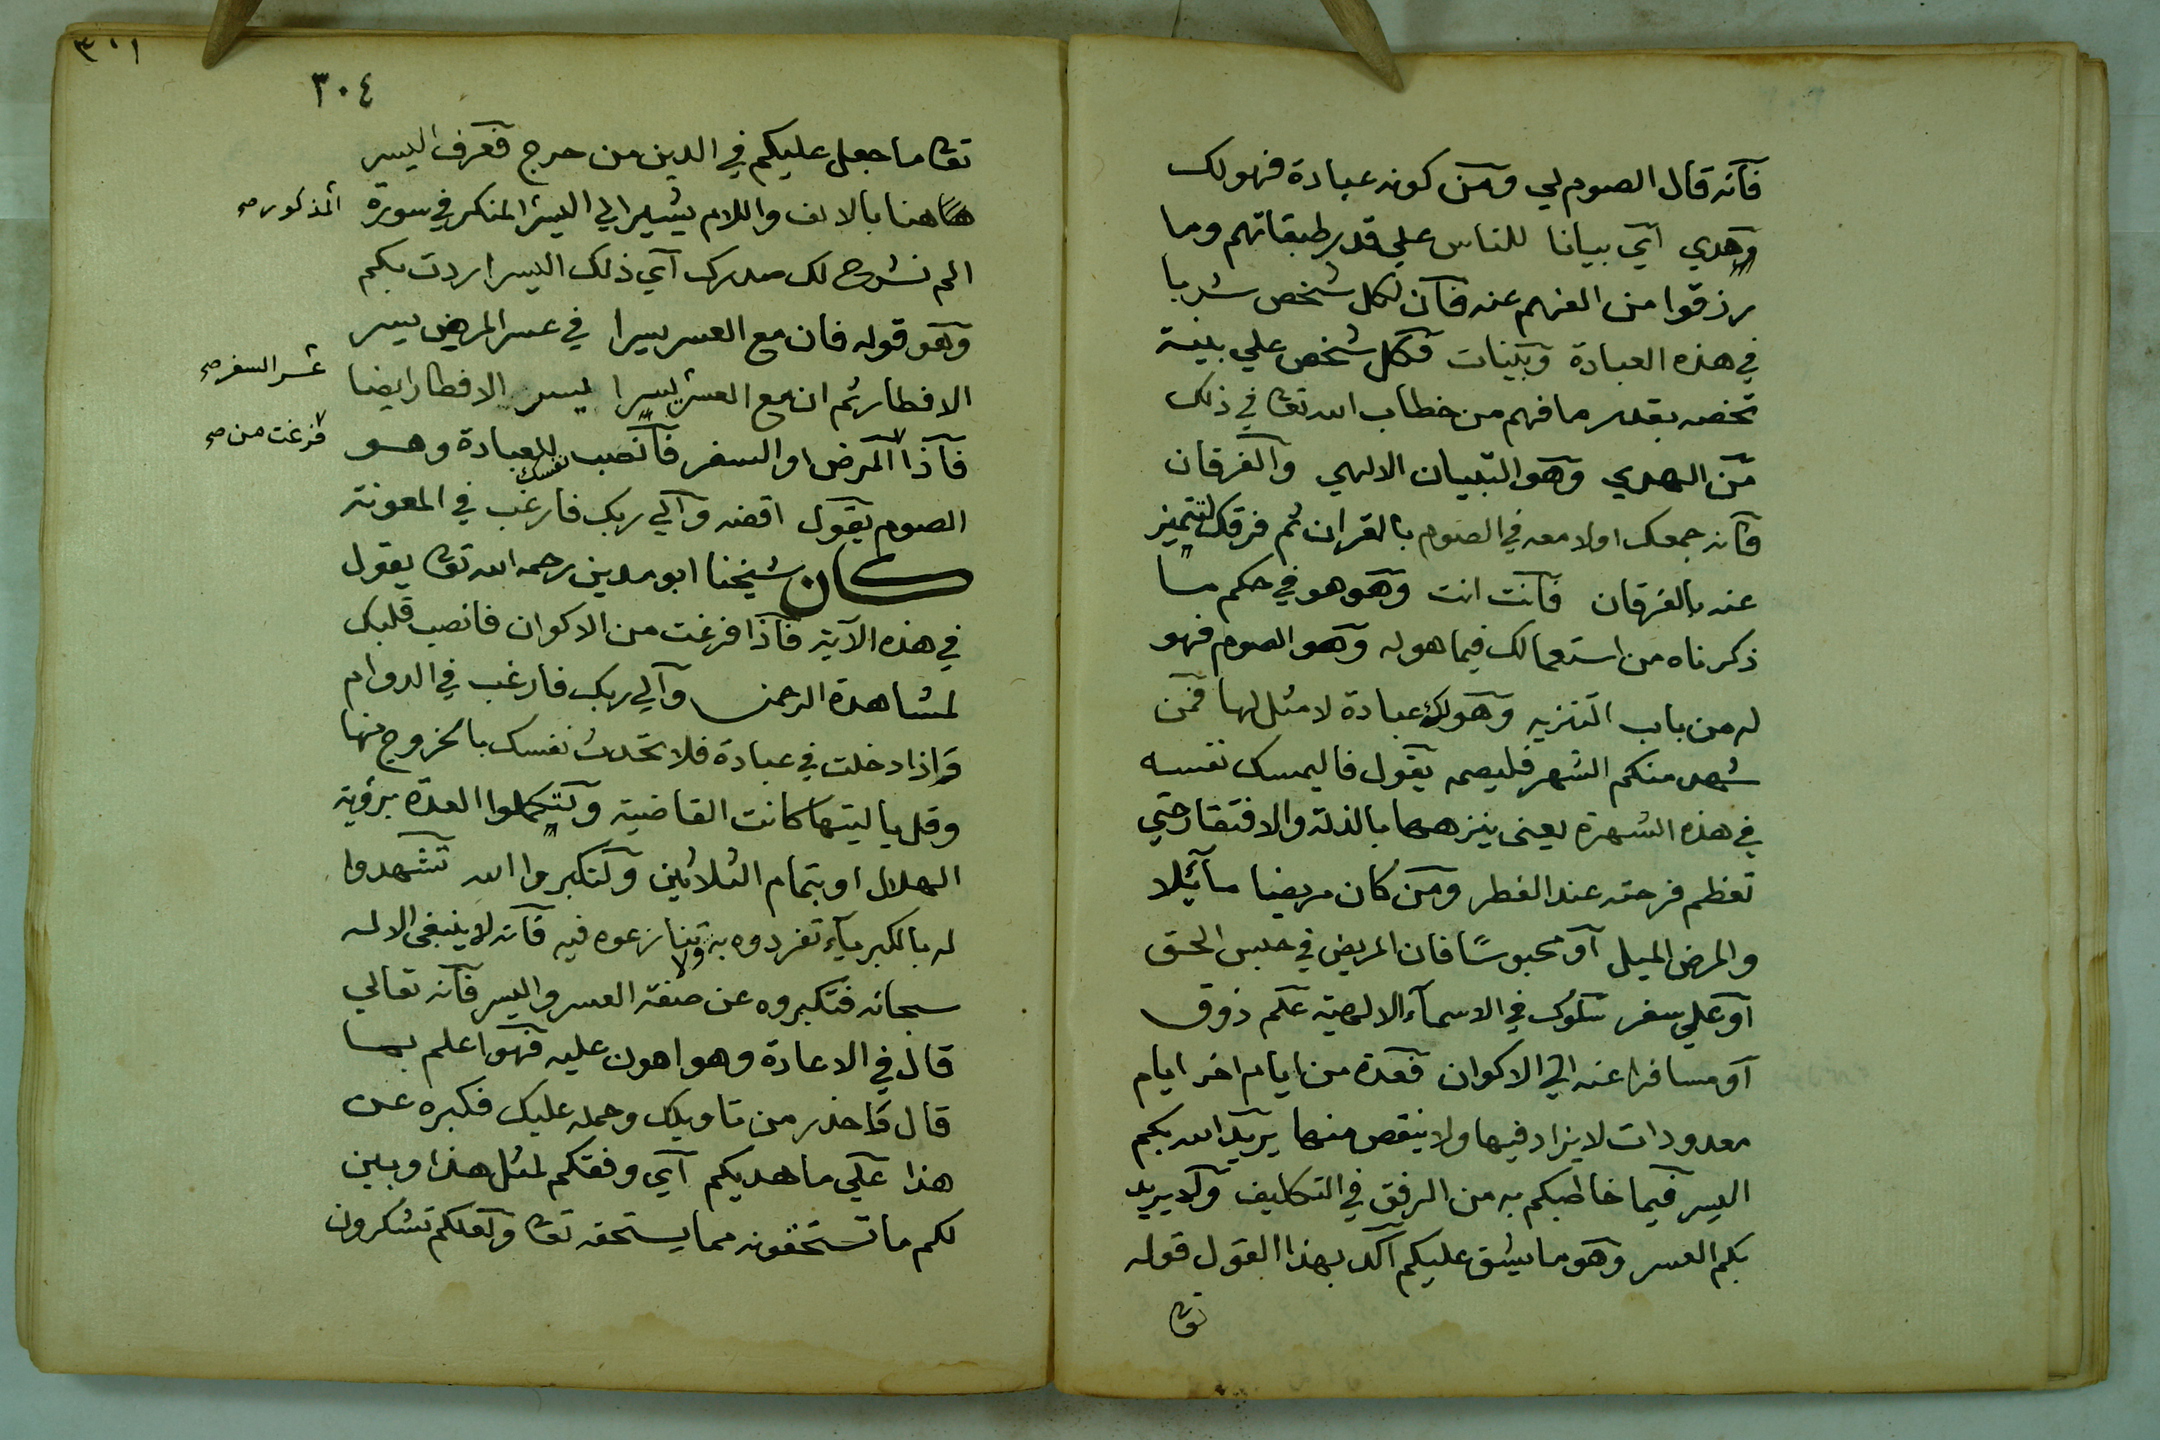 فانه قال الصوم لي ومن كونه عبادة فهو لك
وهدي اي بيانا للناس علي قدر طبقاتهم وما
رزقوا من الفهم عنه فان لكل شخص شربا
في هذه العبادة وبينات فكل شخص علي بينة
تخصه بقدر ما فهم من خطاب الله تعا في ذلك
من الهدي وهو التبيان الالهي والفرقان
فانه جمعك اولا معه في الصوم بالقران ثم فرقك لتتميز
عنه بالفرقان فانت انت وهو هو في حكم ما
ذكرناه من استعمالك فيما هو له وهو الصوم فهو
له من باب التنزيه وهو لك عبادة لا مثل لها فمن
شهد منكم الشهر فليصمه يقول فاليمسك نفسه
في هذه الشهرة يعنى ينزهها بالذلة والافتقار حتي
تعظم فرحته عند الفطر ومن كان مريضا مآئلا
والمرض الميل او محبوسًا فان المريض في حبس الحق
او علي سفر سلوك في الاسمآء الالهية علم ذوق
او مسافرا عنه الي الاكوان فعدة من ايام اخر ايام
معدودات لا يزاد فيها ولا ينقص منها يريد الله بكم
اليسر فيما خاطبكم به من الرفق في التكليف ولا يريد
بكم العسر وهو ما يشق عليكم اكد بهذا القول قوله
تعا
٣٠١
٣٠٤
تعا ما جعل عليكم في الدين من حرج فعرف اليسر
هاهنا بالالف واللام يشير الي اليسر المنكر في سورة
المذكور صح
الم نشرح لك صدرك اي ذلك اليسر اردت بكم
وهو قوله فان مع العسر يسرا في عسر المرض يسر
الافطار ثم ان مع العسر يسرا يسر الافطار ايضا
عسر السفر صح
فاذا المرض او السفر فانصب نفسك للعبادة وهو
فرغت من صح
الصوم يقول اقضه والي ربك فارغب في المعونة
كان شيخنا ابو مدين رحمه الله تعا يقول
في هذه الآية فاذا فرغت من الاكوان فانصب قلبك
لمشاهدة الرحمن والي ربك فارغب في الدوام
واذا دخلت في عبادة فلا تحدث نفسك بالخروج منها
وقل يا ليتها كانت القاضية ولتكملوا العدة برؤية
الهلال او بتمام الثلاثين ولتكبروا الله تشهدوا
له بالكبريآء تفردوه به ولا تنازعوه فيه فانه لا ينبغي الا له
سبحانه فتكبروه عن صفة العسر واليسر فانه تعالي
قال في الاعادة وهو اهون عليه فهو اعلم بما
قال فاحذر من تاويلك وحمله عليك فكبره عن
هذا علي ما هديكم اي وفقكم لمثل هذا وبين
لكم ما تستحقونه مما يستحقه تعا ولعلكم تشكرون